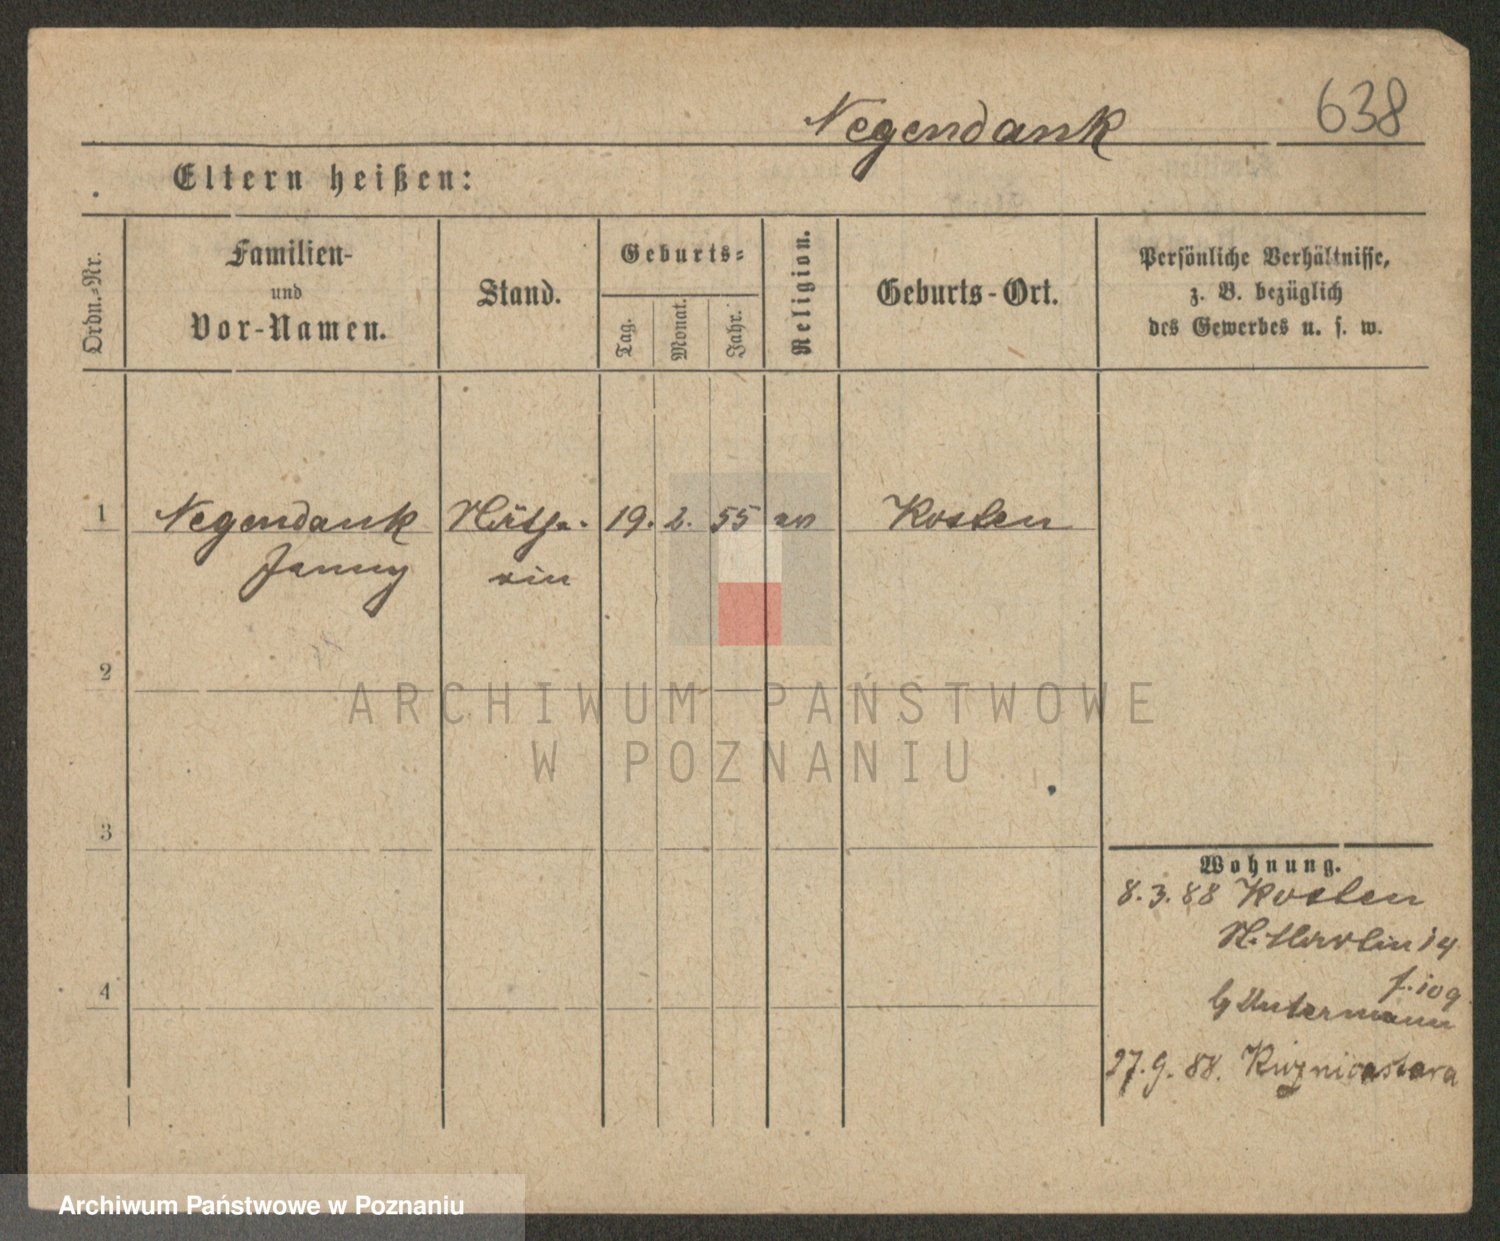 Negendank 638
Eltern heißen:
Ordn.-Nr.
Familien-
und
Vor-Namen.
Stand.
Geburts-
Tag.
Monat.
Jahr.
Religion.
Geburts-Ort.
Persönliche Verhältnisse,
z. B. bezüglich
des Gewerbes u. s. w.
1 Negendank 19. 2. 55 ev Kosten
Jenny rin
2
3
4
Wohnung.
8.3.88 Kosten
14
b/ Untermann
27.9.88. Kuznica stara
ARCHIWUM PAŃSTWOWE
W POZNANIU
Archiwum Państwowe w Poznaniu